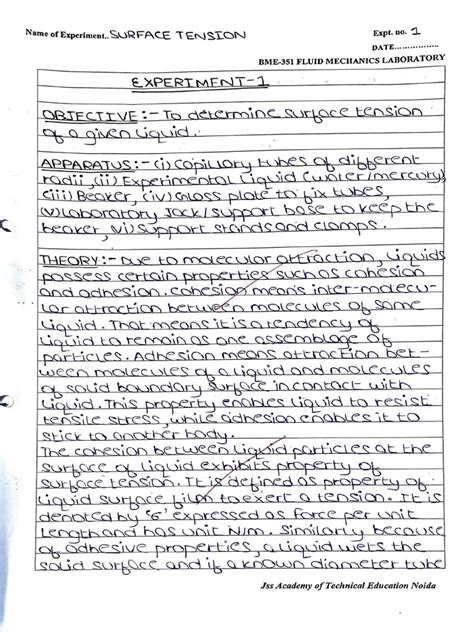 Name of Experiment..SURFACE TENSION Expt. no. 1
DATE................
BME-351 FLUID MECHANICS LABORATORY
EXPERIMENT-1
OBJECTIVE :- To determine surface tension
of a given liquid.
APPARATUS :- (i) Capillary tubes of different
radii, (ii) Experimental Liquid (water/mercury)
(iii) Beaker, (iv) Glass plate to fix tubes,
(v) Laboratory Jack/support base to keep the
beaker, vi) Support stands and clamps.
THEORY :- Due to molecular attraction, liquids
possess certain properties such as cohesion
and adhesion. Cohesion means inter-molecu-
lar attraction between molecules of same
liquid. That means it is a tendency of
liquid to remain as one assemblage of
particles. Adhesion means attraction bet-
ween molecules of a liquid and molecules
of solid boundary surface in contact with
liquid. This property enables liquid to resist
tensile stress, while adhesion enables it to
stick to another body.
The cohesion between liquid particles at the
surface of liquid exhibits property of
surface tension. It is defined as property of
liquid surface film to exert a tension. It is
denoted by '6' expressed as force per unit
length and has unit N/m. Similarly because
of adhesive properties, a liquid wets the
solid surface and if a known diameter tube
Jss Academy of Technical Education Noida